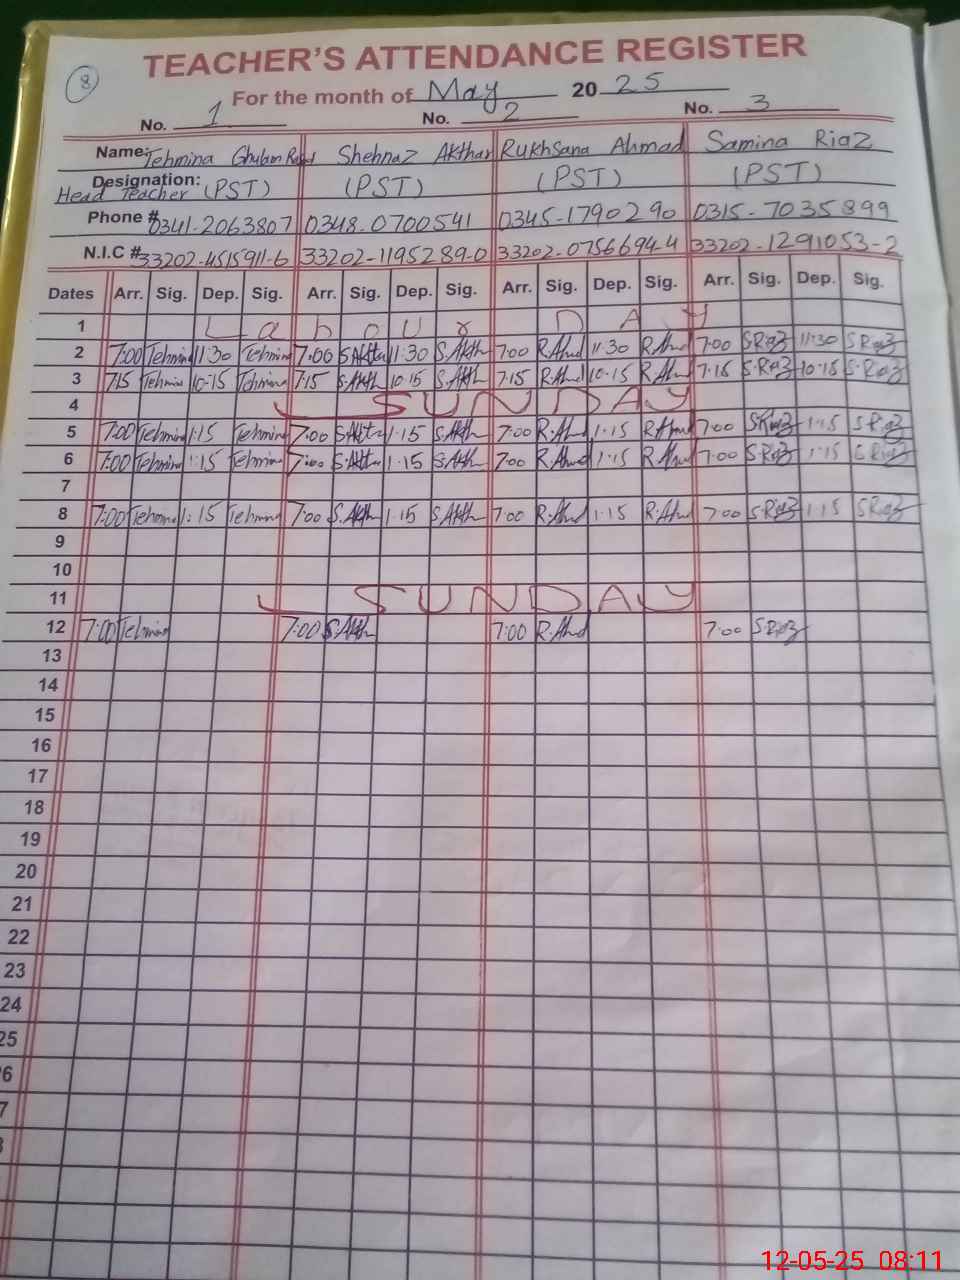 TEACHER'S ATTENDANCE REGISTER
8
For the month of May 20 25
No. 1 No. 2 No. 3
Name: Tehmina Ghulam Shehnaz Akthar Rukhsana Ahmad Samina Riaz
Designation: Head Teacher (PST) (PST) (PST) (PST)
Phone # 0341-2063807 0348-0700541 0345-1790290 0315-7035899
N.I.C # 33202-4515911-6 33202-1195289-0 33202-0756694-4 33202-1291053-2
Dates Arr. Sig. Dep. Sig. Arr. Sig. Dep. Sig. Arr. Sig. Dep. Sig. Arr. Sig. Dep. Sig.
1 Labour DAY
2 7:00 Tehmina 11:30 Tehmina 7:00 S.Akth 11:30 S.Akth 7:00 R.Ahmd 11:30 R.Ahmd 7:00 S.Riaz 11:30 S.Riaz
3 7:15 Tehmina 10:15 Tehmina 7:15 S.Akth 10:15 S.Akth 7:15 R.Ahmd 10:15 R.Ahmd 7:15 S.Riaz 10:15 S.Riaz
4 SUNDAY
5 7:00 Tehmina 1:15 Tehmina 7:00 S.Akth 1:15 S.Akth 7:00 R.Ahmd 1:15 R.Ahmd 7:00 S.Riaz 1:15 S.Riaz
6 7:00 Tehmina 1:15 Tehmina 7:00 S.Akth 1:15 S.Akth 7:00 R.Ahmd 1:15 R.Ahmd 7:00 S.Riaz 1:15 S.Riaz
7
8 7:00 Tehmina 1:15 Tehmina 7:00 S.Akth 1:15 S.Akth 7:00 R.Ahmd 1:15 R.Ahmd 7:00 S.Riaz 1:15 S.Riaz
9
10
11 SUNDAY
12 7:00 Tehmina 7:00 S.Akth 7:00 R.Ahmd 7:00 S.Riaz
13
14
15
16
17
18
19
20
21
22
23
24
25
6
7
12-05-25 08:11